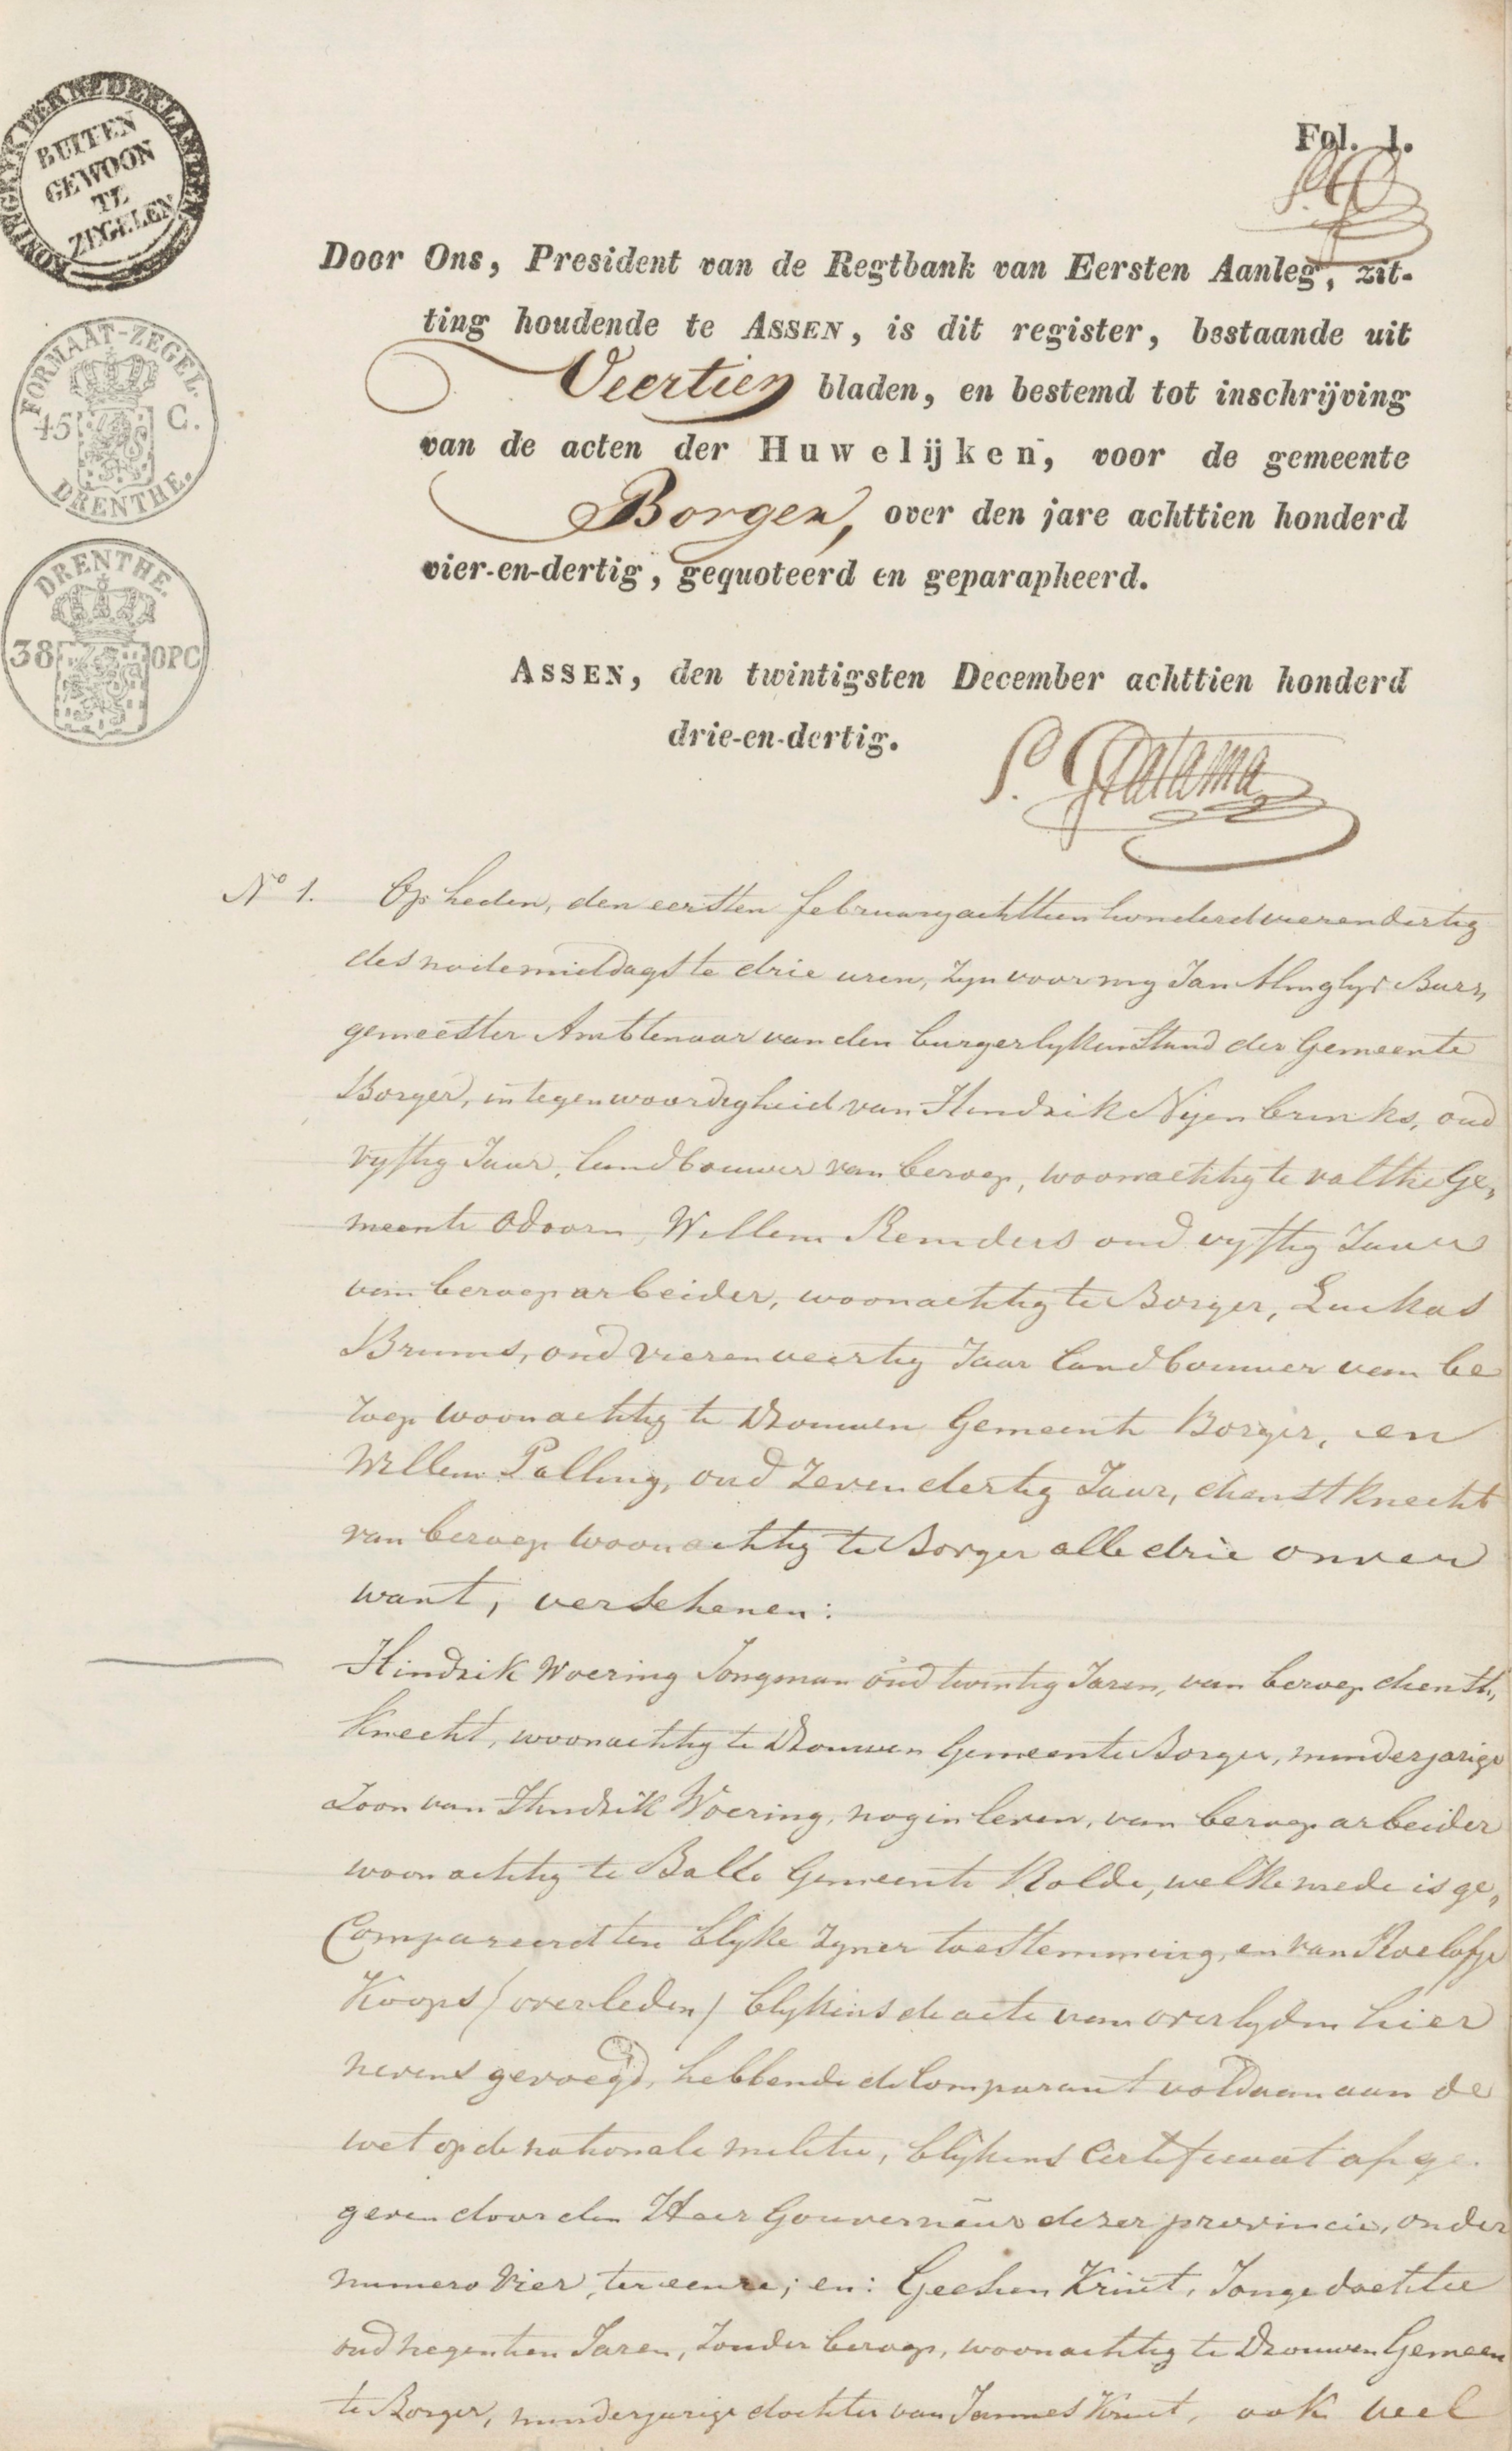 KONINGRYK DER NEDERLANDEN
BUITEN
GEWOON
TE
ZEGELEN
FORMAAT-ZEGEL.
45 C.
DRENTHE.
DRENTHE.
38 OPC
Fol. 1.
Door Ons, President van de Regtbank van Eersten Aanleg, zit-
ting houdende te ASSEN, is dit register, bestaande uit
Veertien bladen, en bestemd tot inschrijving
van de acten der Huwelijken, voor de gemeente
Borger, over den jare achttien honderd
vier-en-dertig, gequoteerd en geparapheerd.
ASSEN, den twintigsten December achttien honderd
drie-en-dertig.
S. Gratama
No 1. Op heden, den eersten february achttien honderd vierendertig
des nademiddags te drie uren, zyn voor my Jan Bur,,
gemeester Ambtenaar van den burgerlyken Stand der Gemeente
Borger, in tegenwoordigheid van Hindrik Nyenbrinks, oud
vyftig Jaar, landbouwer van beroep, woonachtig te valthe Ge,,
meente Odoorn, Willem Remders oud vyftig Jaar
van beroep arbeider, woonachtig te Borger, Luckas
Bruins, oud vierenveertig Jaar landbouwer van be
roep woonachtig te Drouwen Gemeente Borger, en
Willem Palling, oud zevendertig Jaar, dienstknecht
van beroep woonachtig te Borger alle drie onver
want, verschenen:
Hindrik Woering Jongman oud twintig Jaren, van beroep dienst,,
knecht, woonachtig te Drouwen Gemeente Borger, minderjarige
Zoon van Hindrik Woering, nog in leven, van beroep arbeider
woonachtig te Ballo Gemeente Rolde, welke mede is ge,,
Compareerd ten blyke zyner toestemming, en van Roelofje
Koops / overleden / blykens de acte van overlyden hier
nevens gevoegd, hebbende de Comparant voldaan aan de
wet op de nationale militie, blykens Certificaat afge
geven door den Heer Gouverneur dezer provincie, onder
numero Vier, ter eenre; en: Geesien Kruit, Jonge dochter
oud negentien Jaren, zonder beroep, woonachtig te Drouwen Gemeen
te Borger, minderjarige dochter van Jannes Kruit, ook veel